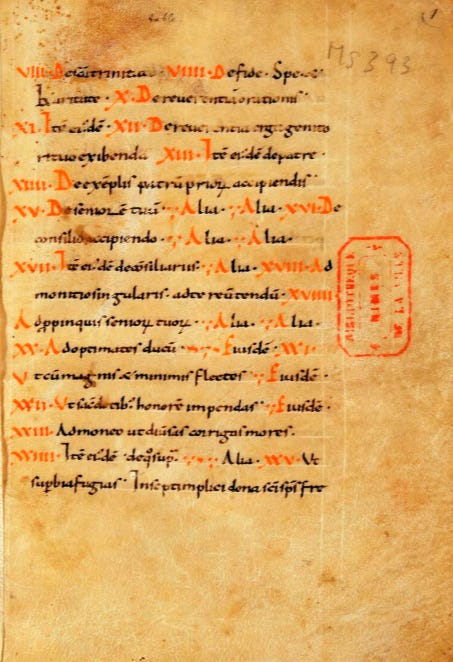 table
MS 393
VIII. De scā trinitate. VIIII. De fide. Spe. et
karitate. X. De reverentia orationis
XI. Itē eiusdē. XII. De reverentia erga genito
rituo exibenda XIII. Itē eiusdē de patre.
XIIII. De exēplis patrū priorꝝ accipiendis
XV. De seniorē tuū. Alia. Alia. XVI. De
consilio accipiendo. Alia. Alia.
XVII. Itē eiusdē de cōsiliariis. Alia. XVIII. Ad
monitio singularis. ad te reūtendū. XVIIII
Ad ppinquis seniorꝝ tuorꝝ. Alia. Alia.
XX. Ad optimates ducū. Eiusdē. XXI.
Ut cū magnis & minimis flectes. Eiusdē.
XXII. Ut sacerdotib; honorē impendas. Eiusdē.
XXIII. Admoneo ut diversis corrigas mores.
XXIIII. Itē eiusdē. de qo sup. Alia. XXV. Ut
supbia fugias. In septimplici dona scī sps fre
BIBLIOTHEQUE
NIMES
DE LA VILLE